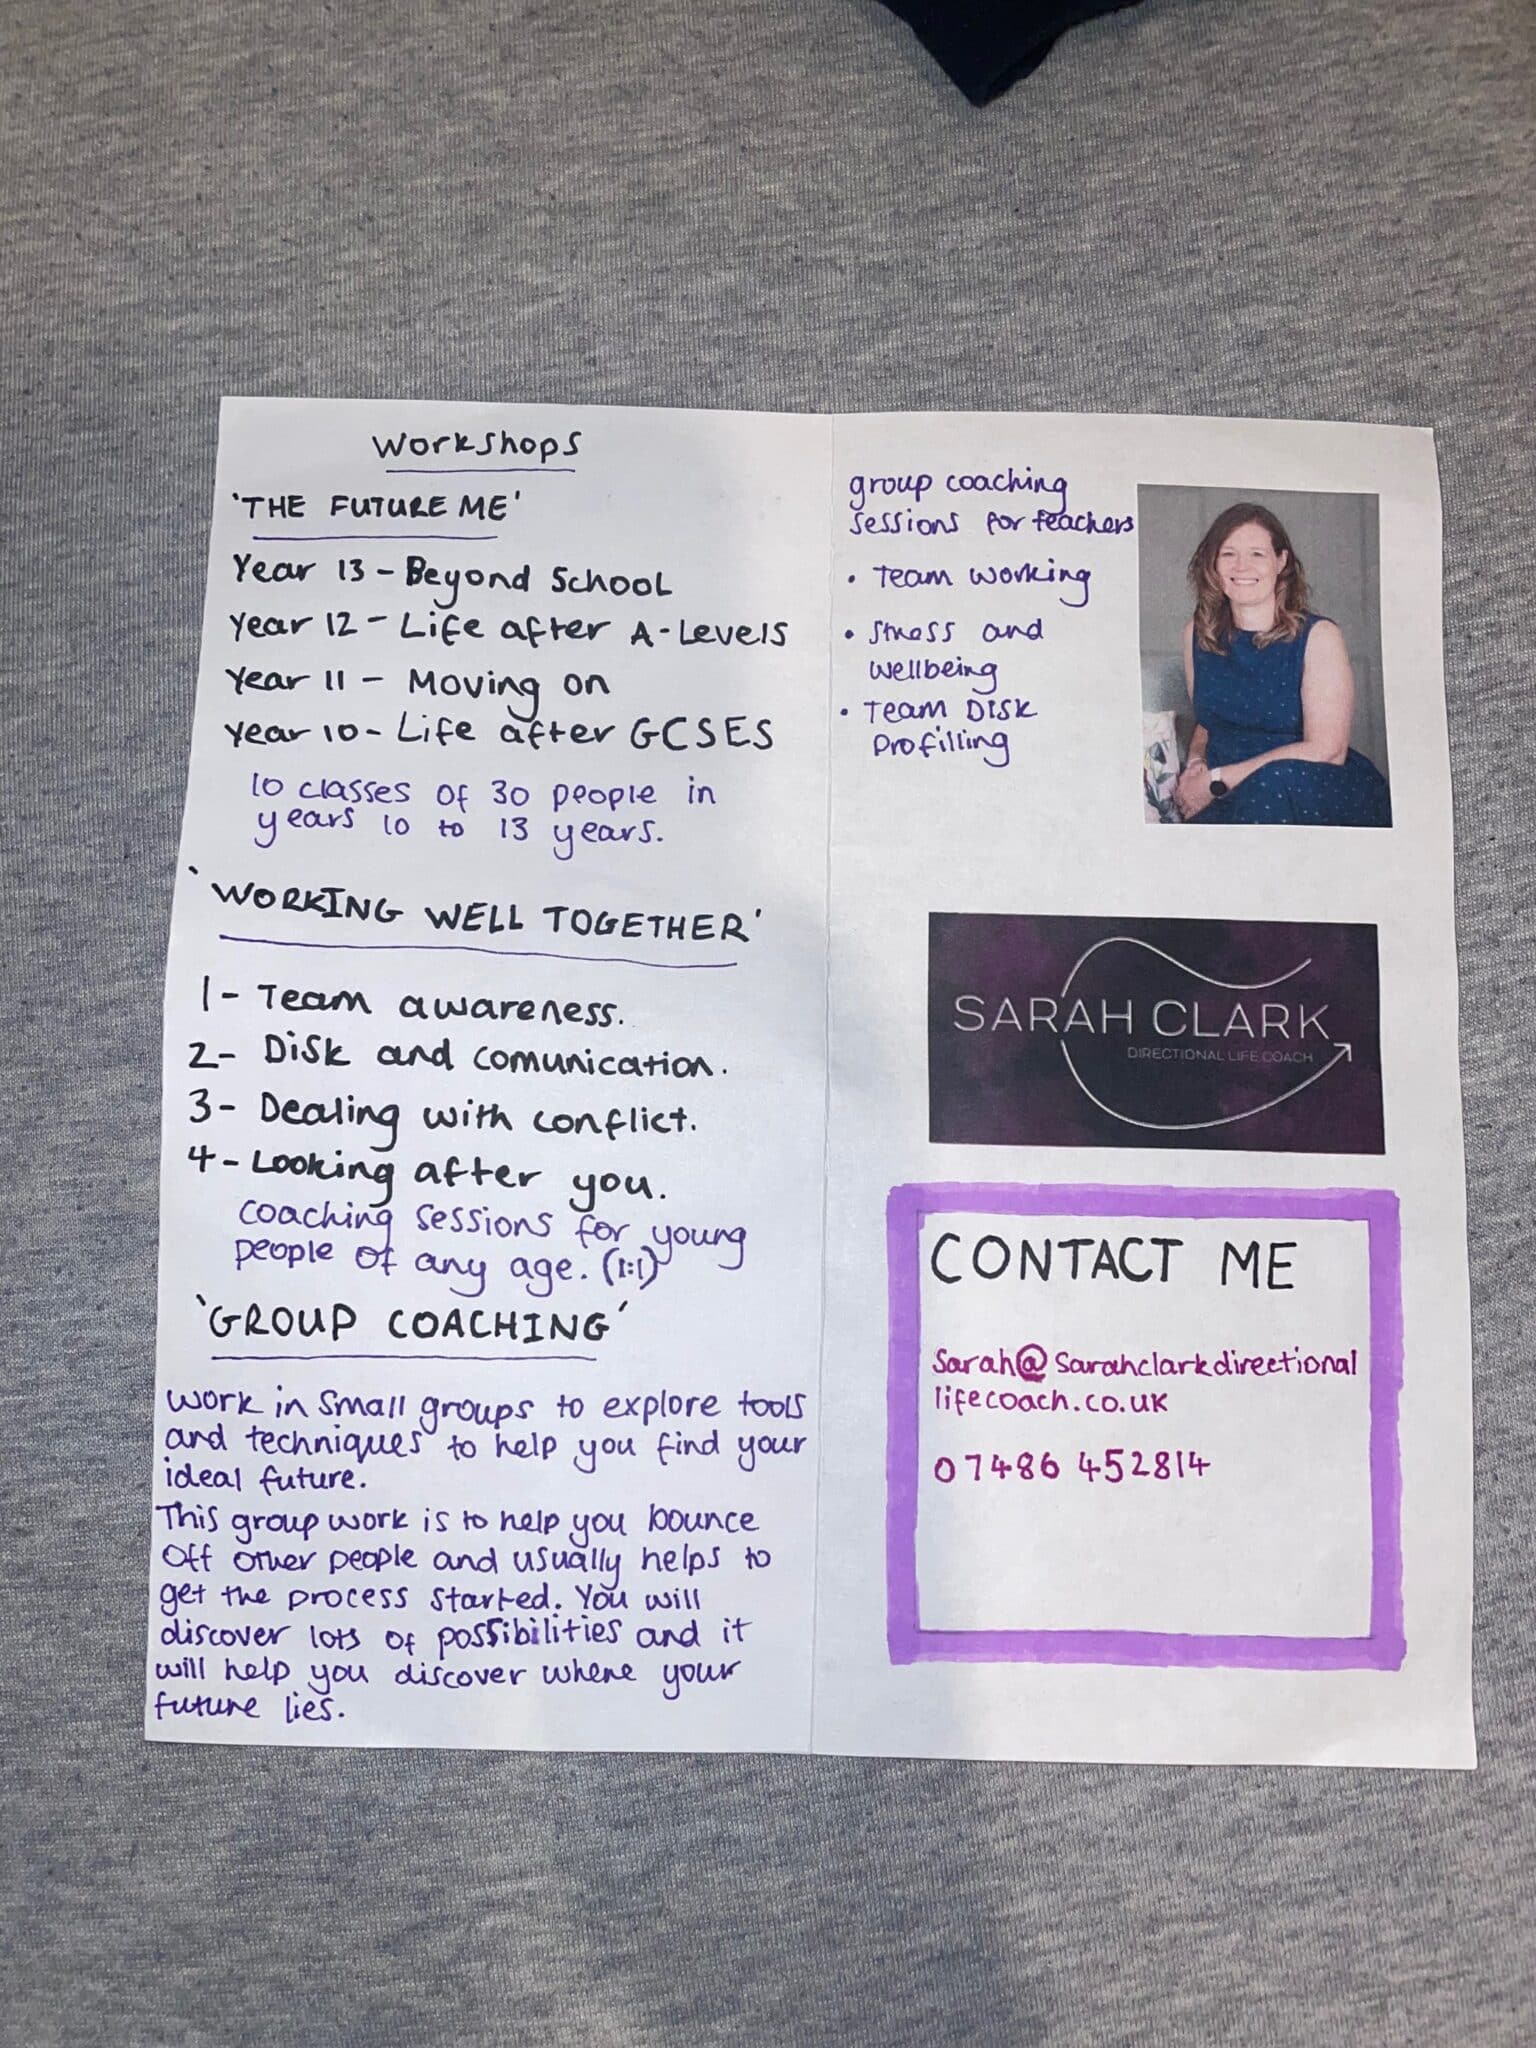 Workshops
'THE FUTURE ME'
Year 13 - Beyond School
Year 12 - Life after A-Levels
Year 11 - Moving on
Year 10 - Life after GCSES
10 classes of 30 people in
years 10 to 13 years.
'WORKING WELL TOGETHER'
1 - Team awareness.
2 - Disk and comunication.
3 - Dealing with conflict.
4 - Looking after you.
coaching sessions for young
people of any age. (1:1)
'GROUP COACHING'
work in small groups to explore tools
and techniques to help you find your
ideal future.
This group work is to help you bounce
off other people and usually helps to
get the process started. You will
discover lots of possibilities and it
will help you discover where your
future lies.
group coaching
sessions for teachers
• Team working
• Stress and
wellbeing
• Team DISK
Profilling
SARAH CLARK
DIRECTIONAL LIFE COACH
CONTACT ME
Sarah@sarahclarkdirectional
lifecoach.co.uk
07486 452814